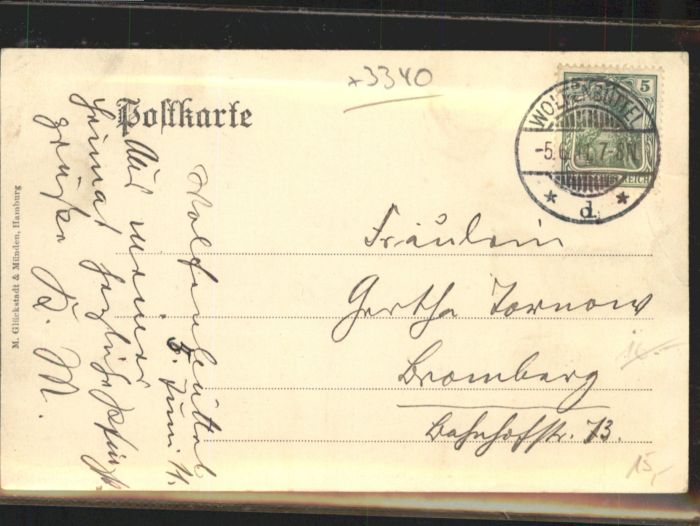 Postkarte
x3340
5
REICH
WOLFENBÜTTEL
-5.6.11.7-8N.
* d. *
Fräulein
Gertha Tornow
Bromberg
Bahnhofstr. 73.
Wolfenbüttel
5. Juni 11.
Aus meiner
Heimat herzliche Pfingst
grüße
M.
M. Glückstadt & Münden, Hamburg
15,-